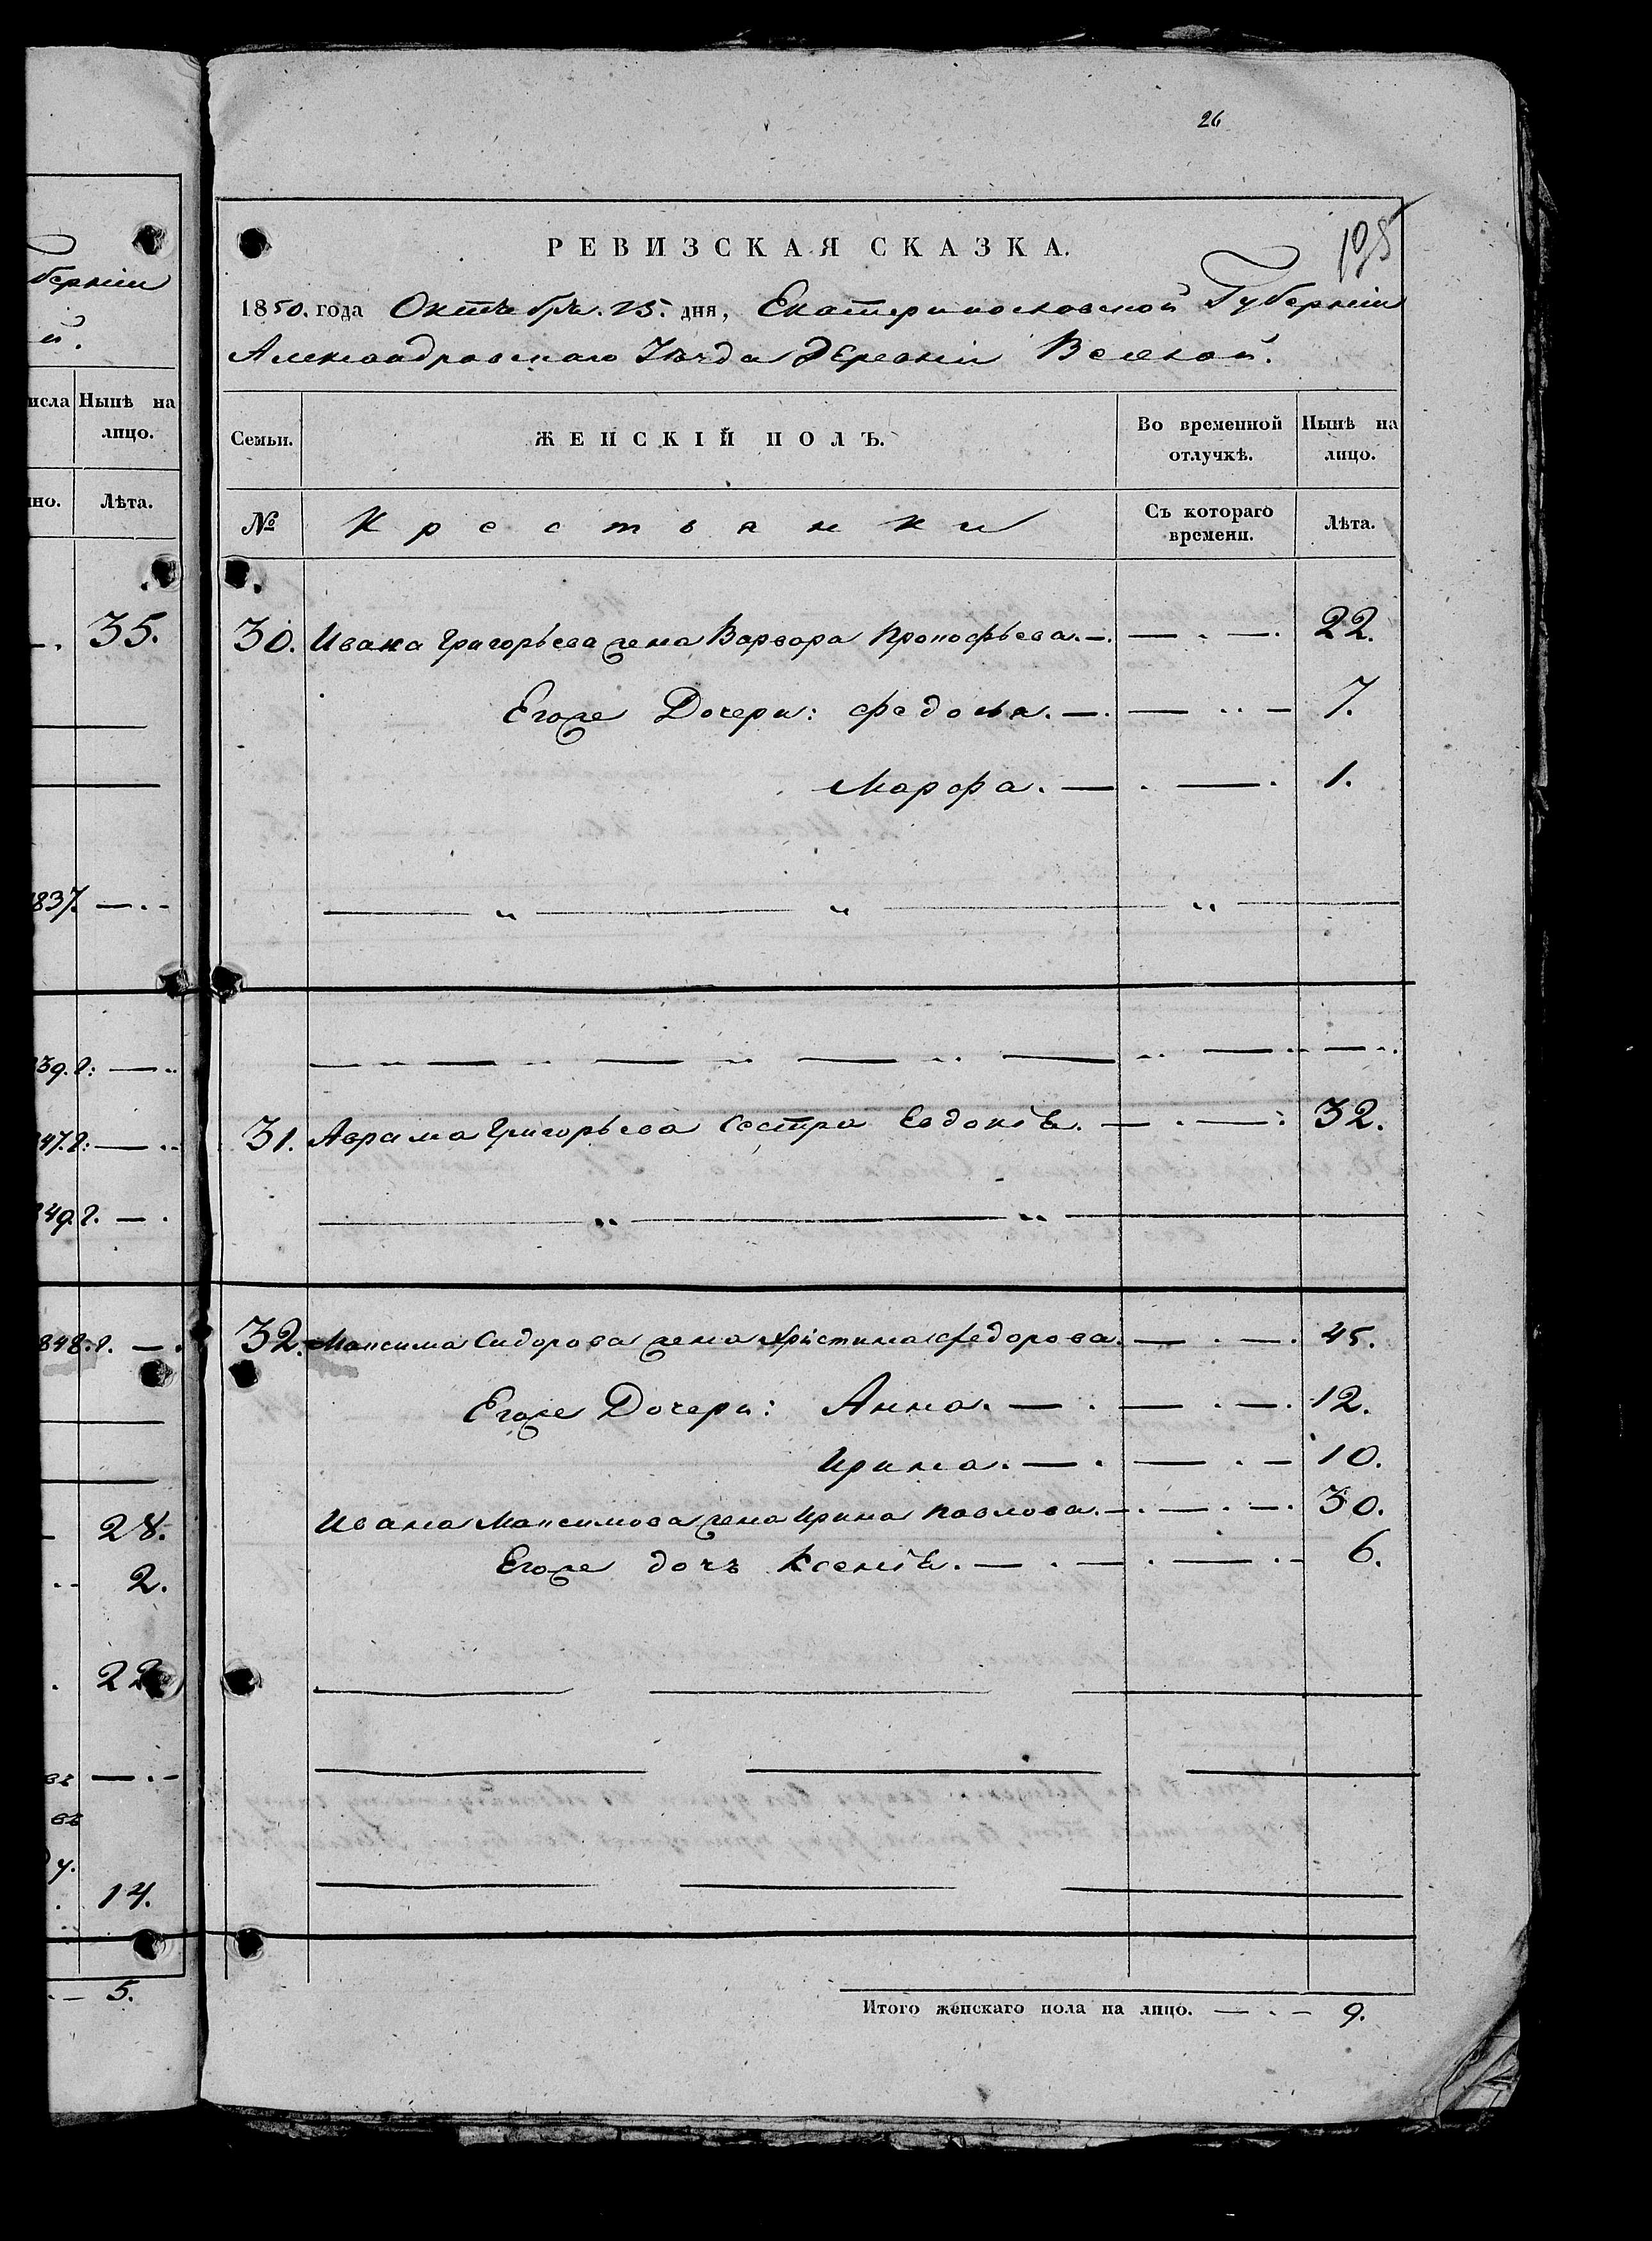 26
195
РЕВИЗСКАЯ СКАЗКА.
1850. года Октября. 25. дня, Екатеринославской Губерніи
Александровскаго Уѣзда Деревни
Семьи. ЖЕНСКІЙ ПОЛЪ. Во временной отлучкѣ. Нынѣ на лицо.
№ Крестьянки Съ котораго времени. Лѣта.
30. Ивана Григорьева жена Варвара Прокофьева. — — . — . 22.
Егоже Дочери: Федосья. — . — .. — 7.
Марфа. — . — . 1.
31. Аврама Григорьева Сестра Евдокія. — . — : 32.
32. Максима Сидорова жена Христина Федорова. — . — . 45.
Егоже Дочери: Анна. — . — . — . 12.
Ирина. — . — . — 10.
Ивана Максимова жена Ирина Павлова. — . — . — . 30.
Егоже дочь Ксенія. — . — . — .. 6.
Итого женскаго пола на лицо. — . — 9.
берніи
й.
исла Нынѣ на лицо.
но. Лѣта.
35.
837. — . -
39. г: — ..
47. г: — ..
49. г. — .
848. г. — .
28.
2.
22
въ — . -
въ
ду.
14.
5.